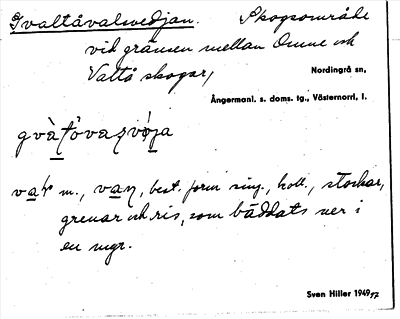 Gvaltåvalsvedjan. Skogsområde
vid gränsen mellan Omne och
Valtö skogar,
Nordingrå sn,
Ångermanl. s. doms. tg., Västernorrl. l.
m., best. form sing., koll., stockar,
grenar och ris, som bäddats ner i
en myr.
Sven Hiller 1949